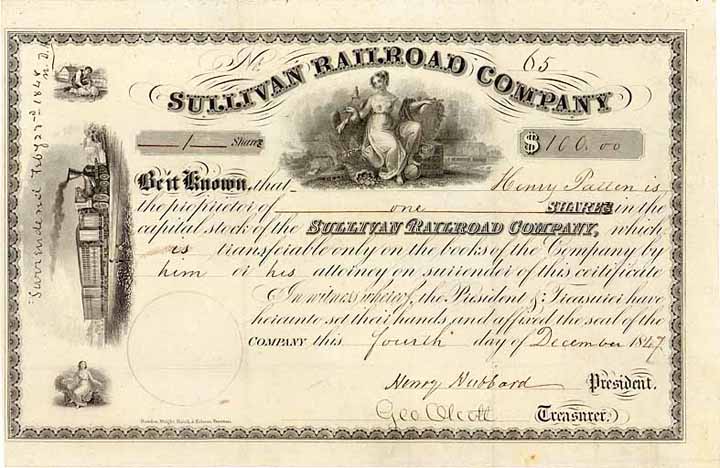 No. 65
SULLIVAN RAILROAD COMPANY
1 Share
$ 100.00
Be it Known, that Henry Patten is
the proprietor of one SHARES in the
capital stock of the SULLIVAN RAILROAD COMPANY, which
is transferable only on the books of the Company by
him or his attorney on surrender of this certificate
In witness whereof, the President & Treasurer have
hereunto set their hands and affixed the seal of the
COMPANY this fourth day of December 1847
Henry Hubbard President.
Geo Olcott Treasurer.
Surrendered Feby 22nd 1848